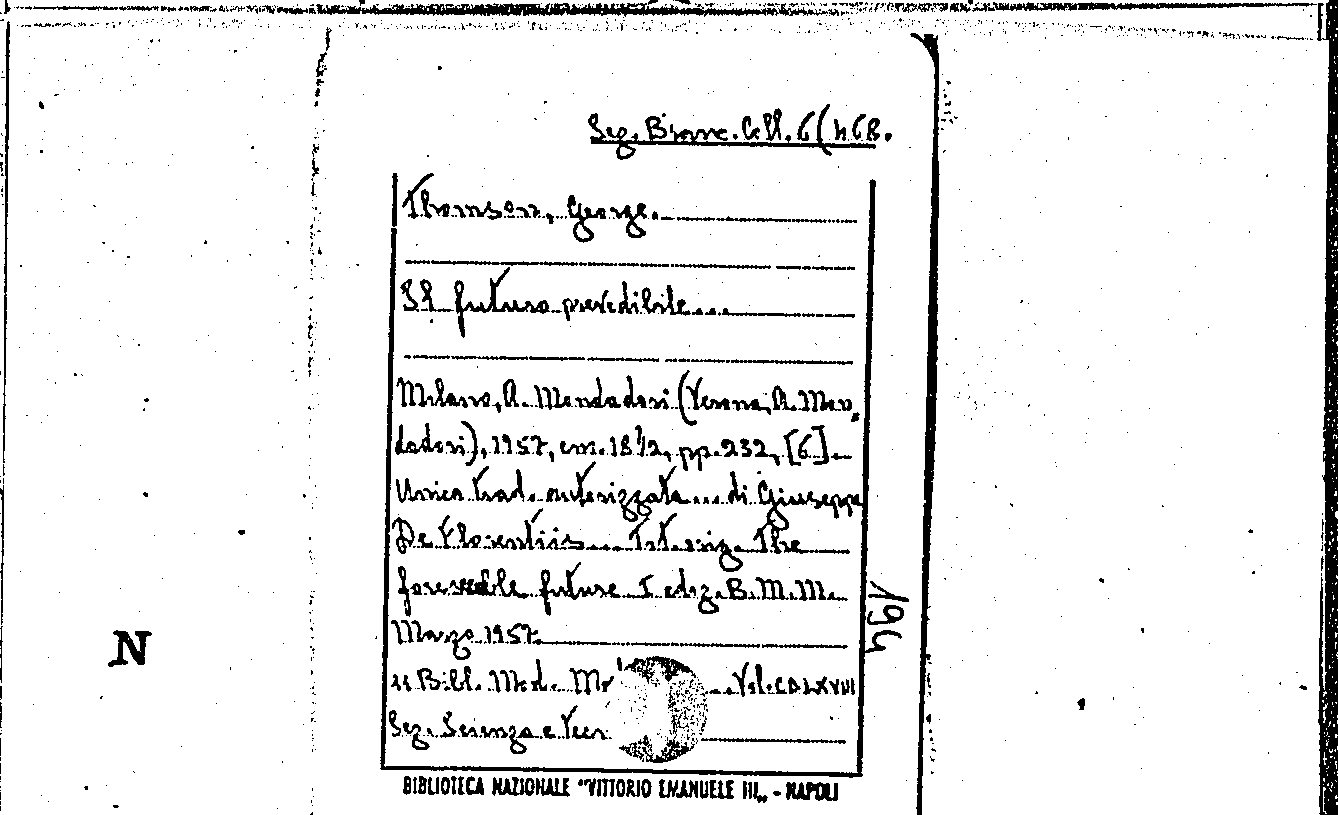 Sez. Branc. Coll. 6(468.
Thomson, George.
Il futuro prevedibile...
Milano, A. Mondadori (Verona, A. Mon,
dadori), 1957, cm. 18 1/2, pp. 232, [6].
Unica trad. autorizzata... di Giuseppe
De Florentiis... Tit. orig. The
foreseeble future I ediz. B. M. M.
Marzo 1957.
Bibl. Mod. Vol. CDLXVIII
Sez. Scienza e
194
N
BIBLIOTECA NAZIONALE "VITTORIO EMANUELE III„ - NAPOLI